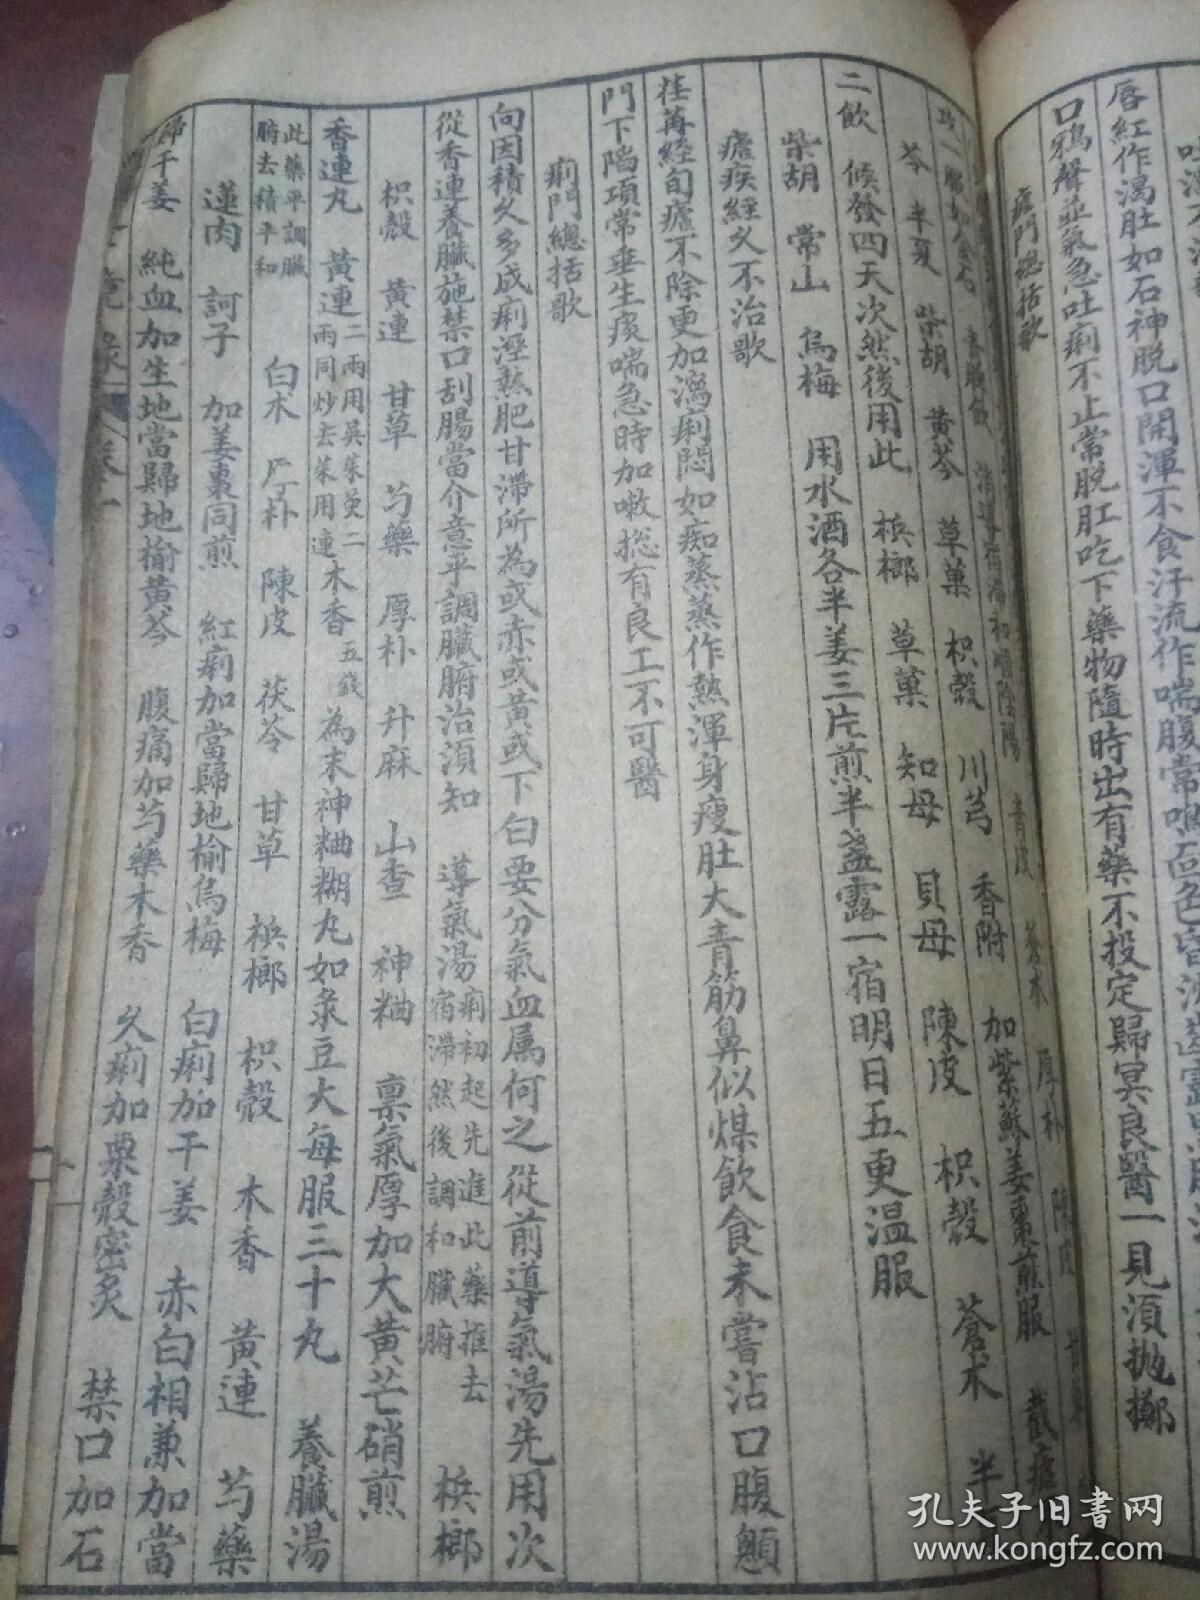 唇紅作渴肚如石神脱口開渾不食汗流作喘腹常鳴面色
口鴉聲並氣急吐痢不止常脱肛吃下藥物隨時出有藥不投定歸冥良醫一見須抛擲
瘧門總括歌
苓 半夏 柴胡 黄芩 草菓 枳殼 川芎 香附 加紫蘇姜棗煎服 截瘧
二飲 候發四天次然後用此 梹榔 草菓 知母 貝母 陳皮 枳殼 蒼术 半
柴胡 常山 烏梅 用水酒各半姜三片煎半盞露一宿明日五更温服
瘧疾經久不治歌
荏苒经旬瘧不除更加瀉痢悶如痴蒸蒸作熱渾身瘦肚大青筋鼻似煤飲食未嘗沾口腹顖
門下陷項常垂生痰喘急時加嗽揔有良工不可醫
痢門總括歌
向因積久多成痢溼熱肥甘滯所為或赤或黄或下白要分氣血属何之從前導氣湯先用次
從香連養臟施禁口刮腸當介意平調臟腑治須知 導氣湯 痢初起先進此藥推去宿滯然後調和臟腑 梹榔
枳殼 黄連 甘草 芍藥 厚朴 升麻 山查 神粬 禀氣厚加大黄芒硝煎
香連丸 黄連二兩用吳茱萸二兩同炒去茱用連木香五錢為末神粬糊丸如彔豆大每服三十丸 養臟湯
此藥平調臟腑去積平和 白术 厈朴 陳皮 茯苓 甘草 梹榔 枳殼 木香 黄連 芍藥
蓮肉 訶子 加姜棗同煎 紅痢加當歸地榆烏梅 白痢加干姜 赤白相兼加當
歸干姜 純血加生地當歸地榆黄芩 腹痛加芍藥木香 久痢加粟殼密炙 禁口加石
孔夫子旧书网
www.kongfz.com